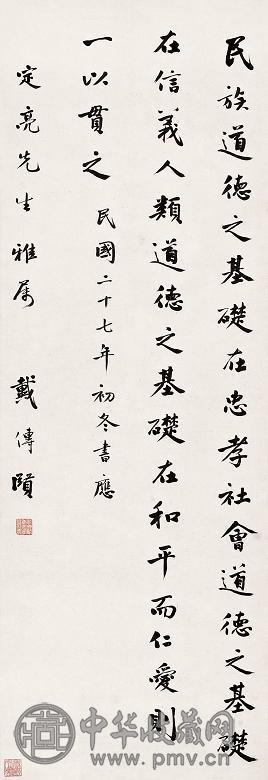 民族道德之基礎在忠孝社會道德之基礎
在信義人類道德之基礎在和平而仁愛則
一以貫之 民國二十七年初冬書應
定亮先生雅屬 戴傳賢
中华收藏网
www.pmv.cn